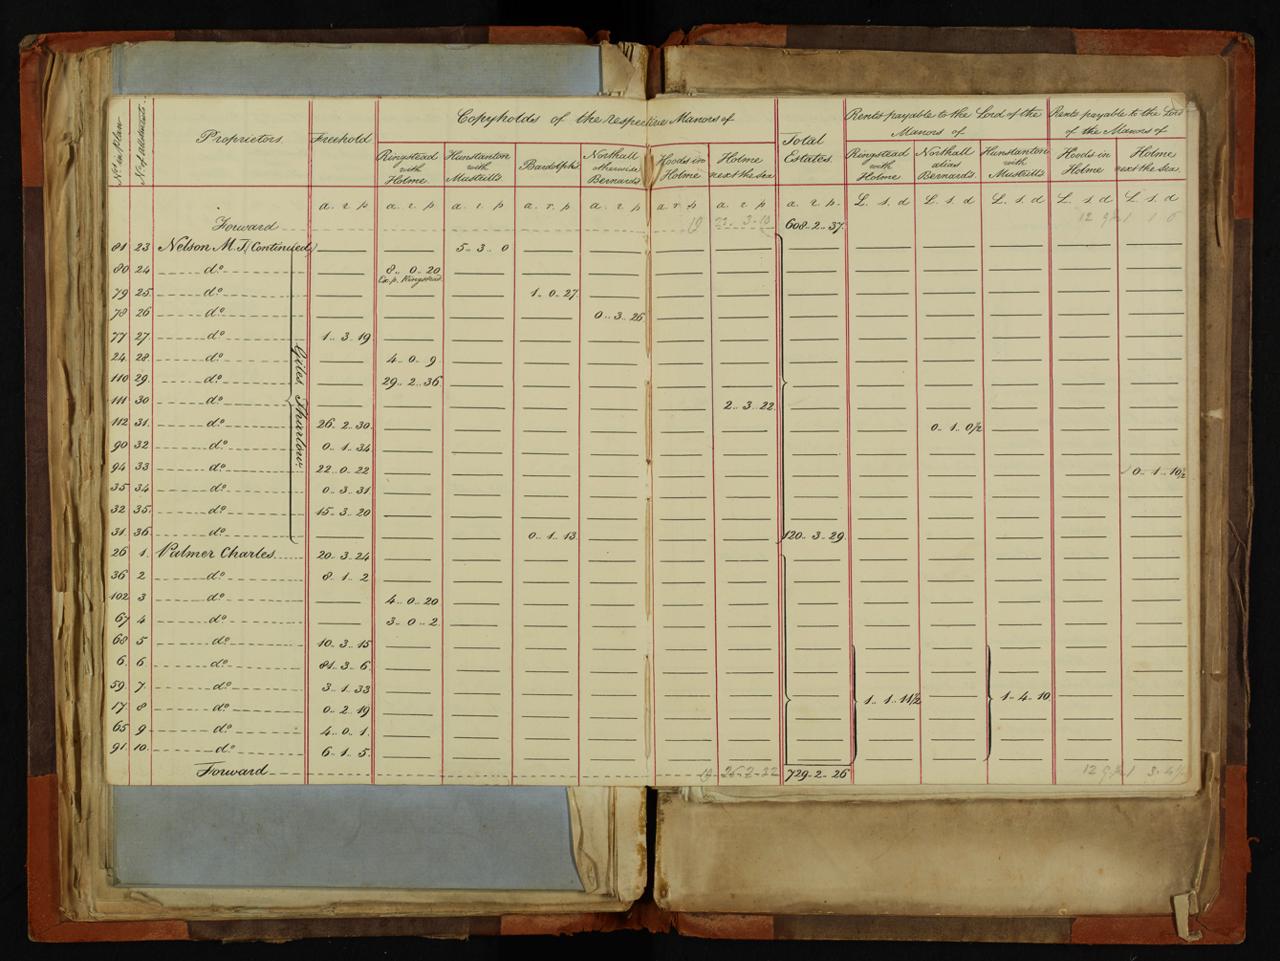 No. in Plan
No. of Abstracts
Proprietors
Freehold
Copyholds of the respective Manors of
Total Estates.
Rents payable to the Lord of the Manors of
Rents payable to the Lord of the Manors of
Ringstead with Holme
Hunstanton with Mustrells
Bardolphs
Northall otherwise Bernards
Hoods in Holme
Holme next the Sea
Ringstead with Holme
Northall alias Bernards
Hunstanton with Mustrells
Hoods in Holme
Holme next the Sea.
a. r. p a. r. p a. r. p a. r. p a. r. p a r p a. r. p a. r. p. L. s. d L. s. d L. s. d L. s. d L. s. d
Forward 19 22..3..10 608..2..37 12 9½ 1 1 0
81 23 Nelson M. J. (Continued) 5..3..0
80 24 do 8..0..20
Ex. p. Ringstead
79 25 do 1..0..27
78 26 do 0..3..26
77 27 do 1..3..19
24 28 do 4..0..9
110 29 do 29..2..36
111 30 do 2..3..22
112 31 do 26..2..30 0..1..0½
90 32 do 0..1..34
94 33 do 22..0..22 0..1..10½
35 34 do 0..3..31
32 35 do 15..3..20
31 36 do 0..1..13 120..3..29
Giles Thurlow
26 1 Palmer Charles 20..3..24
36 2 do 8..1..2
102 3 do 4..0..20
67 4 do 3..0..2
68 5 do 10..3..15
6 6 do 81..3..6
59 7 do 3..1..33 1..1..11½ 1..4..10
17 8 do 0..2..19
65 9 do 4..0..1
91 10 do 6..1..5
Forward 19 25..2..32 729..2..26 12 9½ 1 3..4½